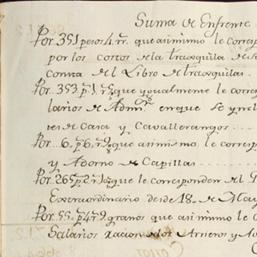 Suma de Enfrente
Por 351 pesos 4 rr. que asi mismo le corresp
por los costos de la traxquila de
conta del Libro de traxquilas
Por 353 p.s 1 r. que ygualmente le corre
larios de Adm.or en que se yncl
res de Casa y Cavallerangos
Por 6 p.s 6 r.s que asi mismo, le corresp
y Adorno de Capillas
Por 265 p.s 2 r.s que le corresponden al
Extraordinario desde 18 de May
Por 55 p.s 4 r.s 9 granos que asi mismo le
Salarios racion de los Arrieros y